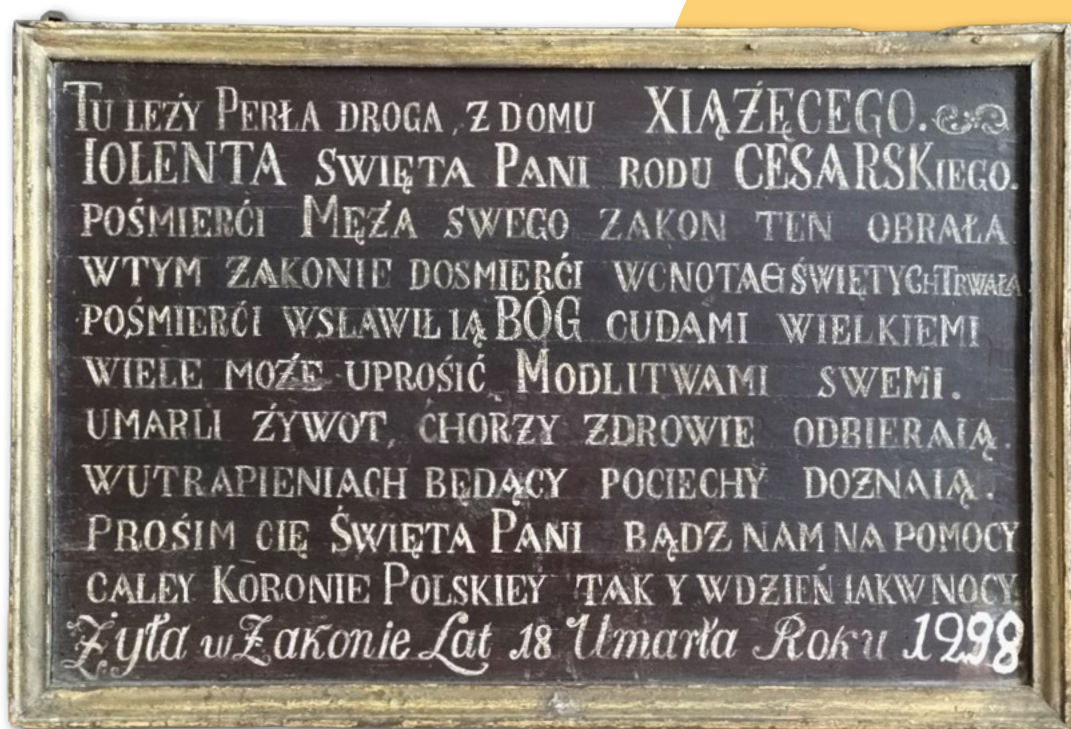 TU LEŻY PERŁA DROGA, Z DOMU XIĄŻĘCEGO.
IOLENTA SWIĘTA PANI RODU CESARSKIEGO.
POŚMIERĆI MĘŻA SWEGO ZAKON TEN OBRAŁA
WTYM ZAKONIE DOSMIERĆI WCNOTACH ŚWIĘTYCH TRWAŁA
POŚMIERĆI WSLAWIŁ IĄ BÓG CUDAMI WIELKIEMI
WIELE MOŻE UPROŚIĆ MODLITWAMI SWEMI.
UMARLI ŻYWOT, CHORZY ZDROWIE ODBIERAIĄ.
WUTRAPIENIACH BĘDĄCY POCIECHY DOZNAIĄ.
PROŚIM CIĘ ŚWIĘTA PANI BĄDZ NAM NA POMOCY
CALEY KORONIE POLSKIEY TAK Y WDZIEŃ IAKWNOCY
Żyła w Zakonie Lat 18 Umarła Roku 1298